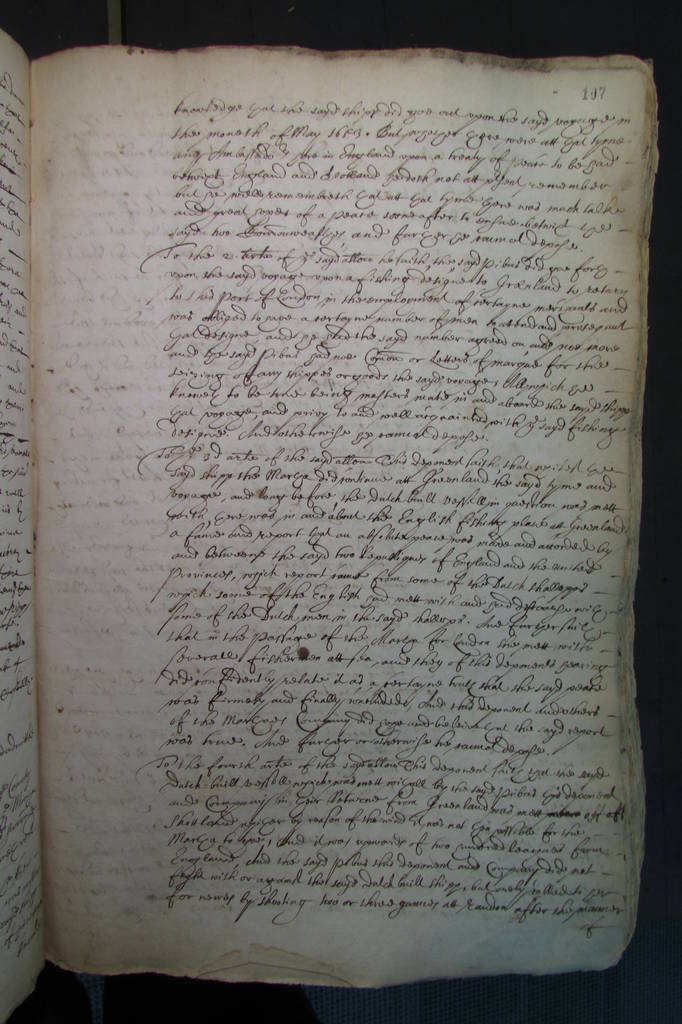 107
knowledge that the sayd shipp did goe out upon the sayd voyage in
the moneth of May 1653. But whether there were att that tyme
any Ambassado:rs here in England upon a treaty of peace to be had
betwixt England and Holland hee doth not att present remember
but he well remembreth that att that tyme there was much talke
and great hopes of a peace soone after to ensue betwixt the
sayd two Commonwealthes and further he cannot depose.
To the 2 arte of the sayd allon he saith, the sayd Pibus did goe forth
upon the sayd voyage upon a fishing designe to Greenland to returne
to this Port of London in the employment of certayne merchants and
was obliged to have a certayne number of men to attend and prosecute
that designe and he had the sayd number agreed on and not more
and the sayd Pibus had noe Comon or Letters of marque for the
seizing of any shipps or goods the sayd voyage, All which he
knoweth to be true being masters mate in and aboard the sayd shipp
that voyage, and privy to and well acquainted with the sayd fishing
designe. And otherwise he cannot depose.
To the 3d arte of the sayd allon This deponent saith, that whilest the
sayd shipp the Martha did continue att Greenland the sayd tyme and
voyage, and long before the dutch built vessell in question was mett
with there was in and about the English fishing place at Greenland
a fame and report that an absolute peace was made and accorded by
and betweene the sayd two Republiques of England and the United
Provinces, which report came from some of the Dutch shallops
which some of the English had mett with and had discourse with
some of the Dutch men in the sayd shallops. And further saith
that in the passage of the Martha for London she mett with
severall fishermen att sea, and they of this deponents hearing
did confidently relate it as a certayne truth that the sayd peace
was firmely and finally concluded, And this deponent and others
of the Marthaes Company did hope and beleive that the sayd report
was true. And further or otherwise he cannot depose.
To the fourth arte of the sayd allon This deponent saith that the sayd
Dutch built vessell which was mett withall by the sayd Pibus this deponent
and Company in their Returne from Greenland was mett off of
Shotland whither by reason of the wind it was not possible for the
Martha to gett, And it was upwards of two hundred leagues from
England, And the sayd Pibus this deponent and Company did not
fight with or against the sayd dutch built shipp, but onely called to her
for newes by shooting two or three gunnes att randon after the manner
of